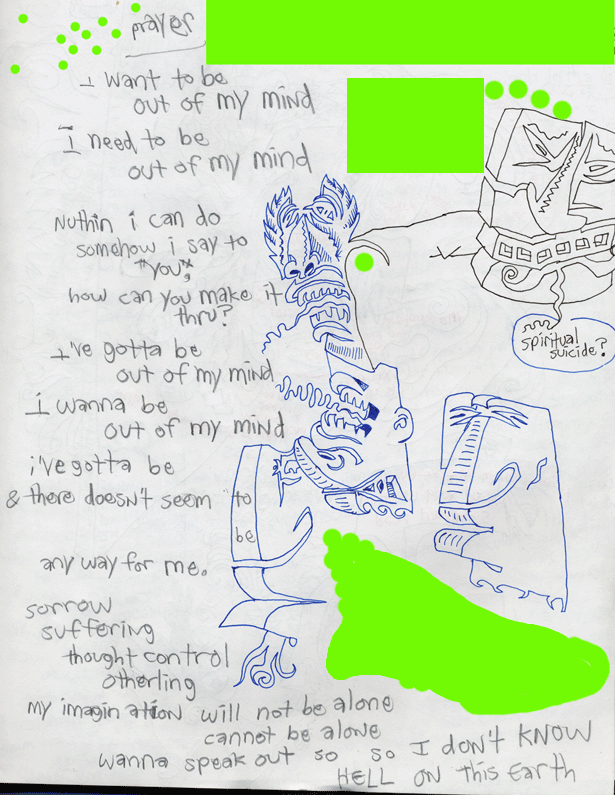 prayer
I want to be
out of my mind
I need to be
out of my mind
Nuthin i can do
somehow i say to
"you",
how can you make it
thru?
I've gotta be
out of my mind
i wanna be
out of my mind
i've gotta be
& there doesn't seem to
be
any way for me.
spiritual
suicide?
sorrow
suffering
thought control
otherling
my imagination will not be alone
cannot be alone
wanna speak out so so I don't KNOW
HELL ON This Earth